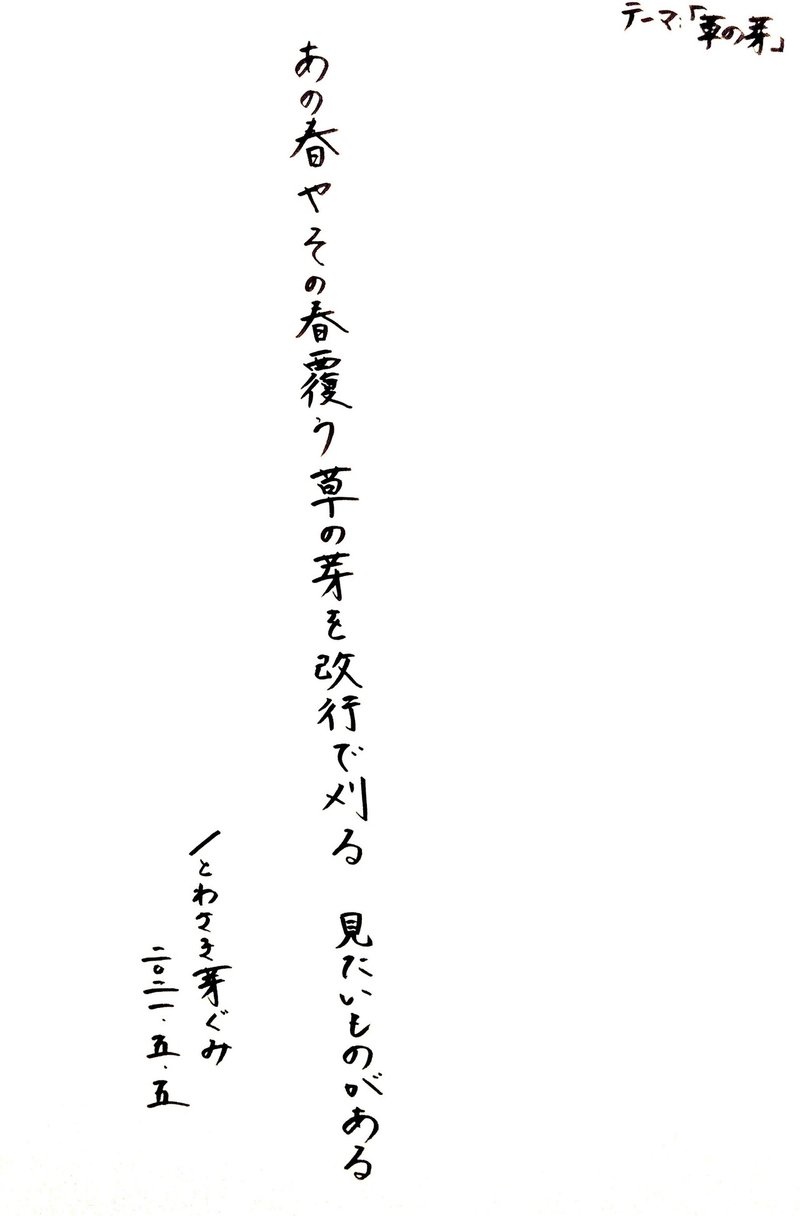 テーマ:「草の芽」
あの春やその春覆う草の芽を改行で刈る　見たいものがある
/とわさき芽ぐみ
二〇二一・五・五